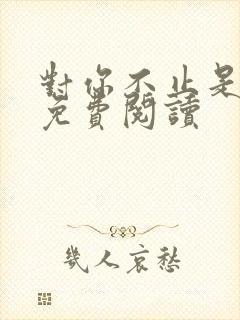 對你不止是
免費閱讀
幾人哀愁